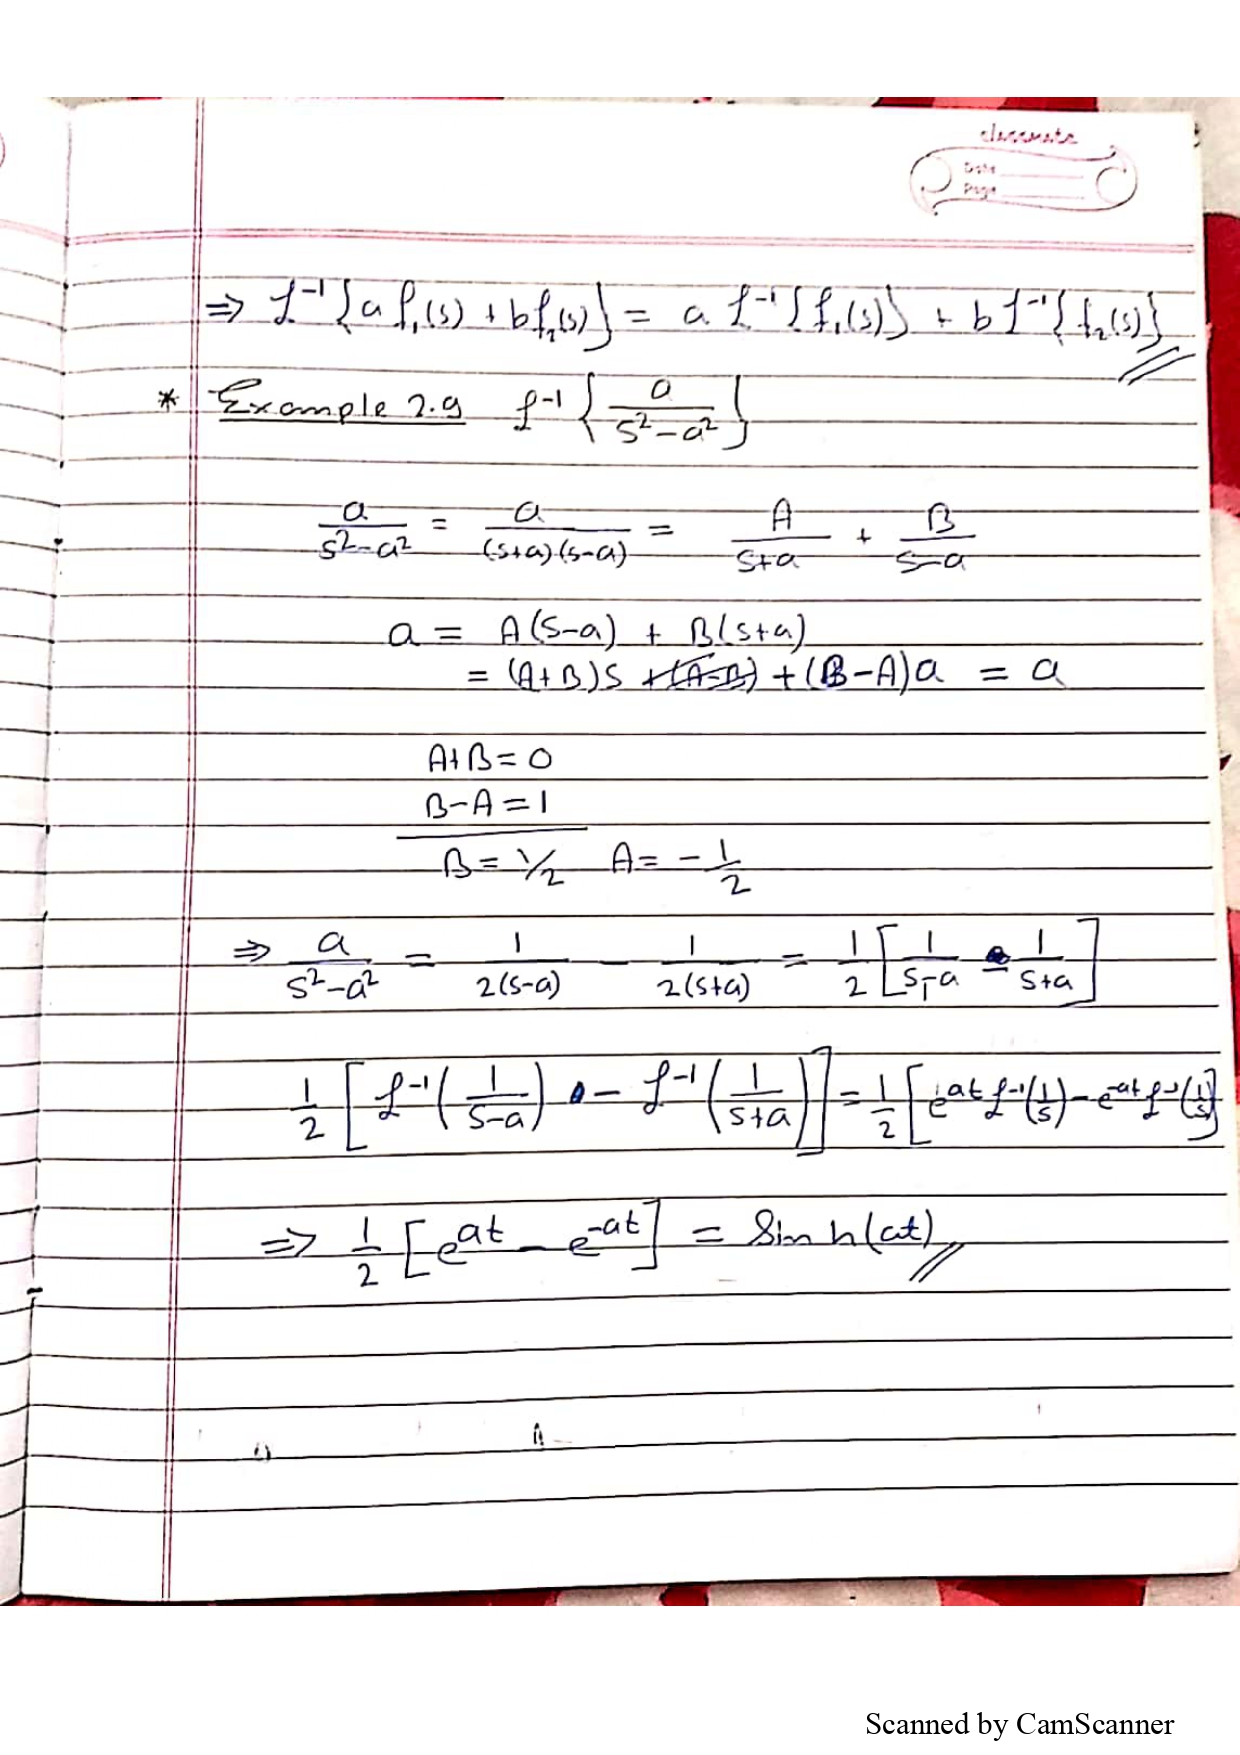 classmate
Date
Page
⇒ ℒ⁻¹{a f₁(s) + b f₂(s)} = a ℒ⁻¹{f₁(s)} + b ℒ⁻¹{f₂(s)}
* Example 2.9 ℒ⁻¹{a/(s²-a²)}
a/(s²-a²) = a/((s+a)(s-a)) = A/(s+a) + B/(s-a)
a = A(s-a) + B(s+a)
= (A+B)s + (B-A)a = a
A+B = 0
B-A = 1
B = 1/2 A = -1/2
⇒ a/(s²-a²) = 1/(2(s-a)) - 1/(2(s+a)) = 1/2 [1/(s-a) - 1/(s+a)]
1/2 [ℒ⁻¹(1/(s-a)) - ℒ⁻¹(1/(s+a))] = 1/2 [e^at ℒ⁻¹(1/s) - e^-at ℒ⁻¹(1/s)]
⇒ 1/2 [e^at - e^-at] = Sin h(at)
Scanned by CamScanner